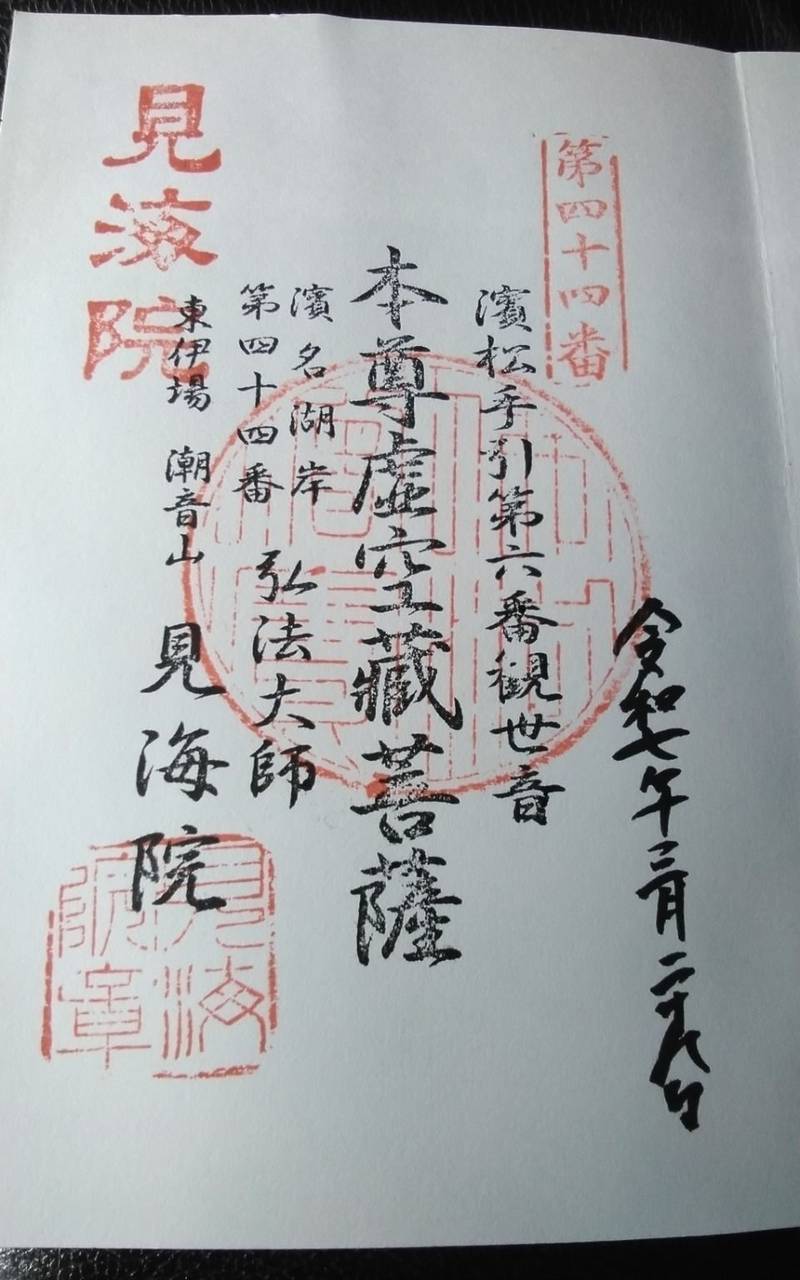 令和七年三月二十九日
第四十四番
濱松手引第六番観世音
本尊虚空藏菩薩
濱名湖岸
第四十四番 弘法大師
東伊場 潮音山 見海院
見海院
見海院章